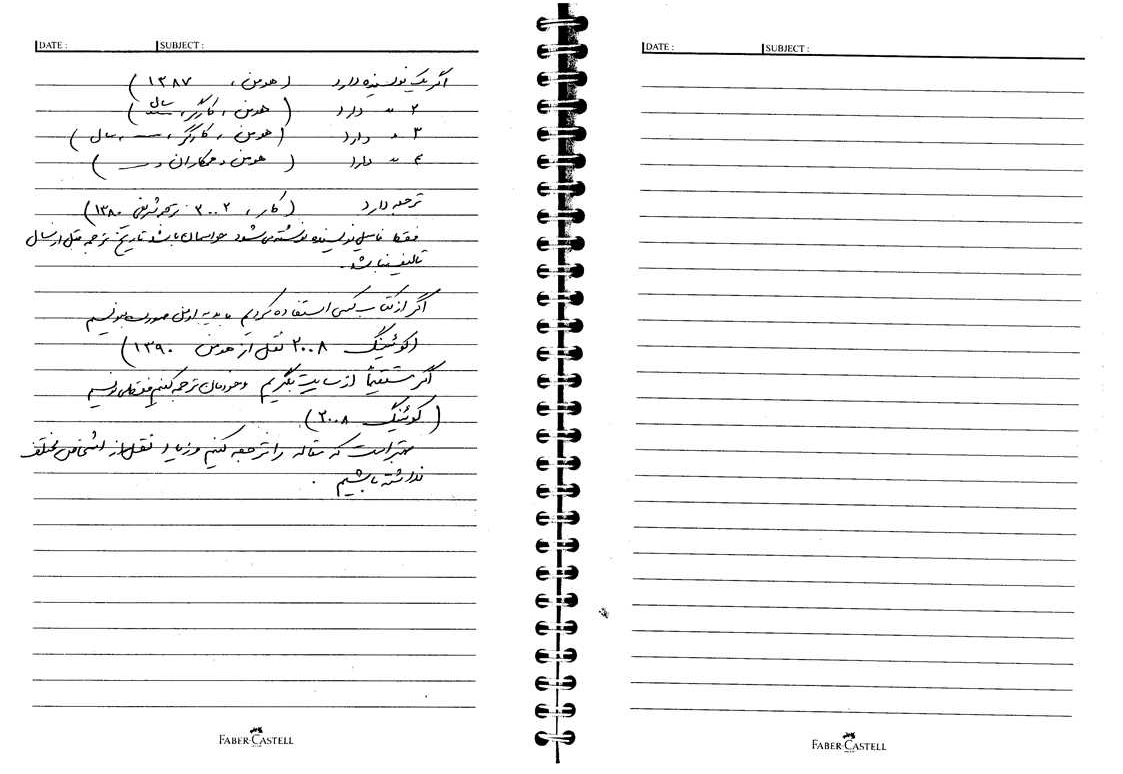 DATE :
SUBJECT :
اگر یک نویسنده دارد (هومن ، ۱۳۸۷)
۲ " دارد (هومن ، کارگر، سال)
۳ " دارد (هومن ، کارگر، — ، سال)
۴ " دارد (هومن و همکاران و —)
ترجمه دارد (کار ، ۲۰۰۳ ترجمه شریفی ۱۳۸۰)
فقط فامیل نویسنده نوشته می‌شود حواسمان باشد تاریخ ترجمه قبل از سال
تالیف نباشد.
اگر از کتاب کسی استفاده کردیم باید به این صورت بنویسیم
(کوئینگ ۲۰۰۸ نقل از هومن ۱۳۹۰)
اگر مستقیماً از سایت بگیریم و خودمان ترجمه کنیم فقط می‌نویسیم
(کوئینگ ۲۰۰۸)
بهتر است که مقاله را ترجمه کنیم و زیاد نقل از اشخاص مختلف
نداشته باشیم .
FABER-CASTELL
DATE :
SUBJECT :
FABER-CASTELL